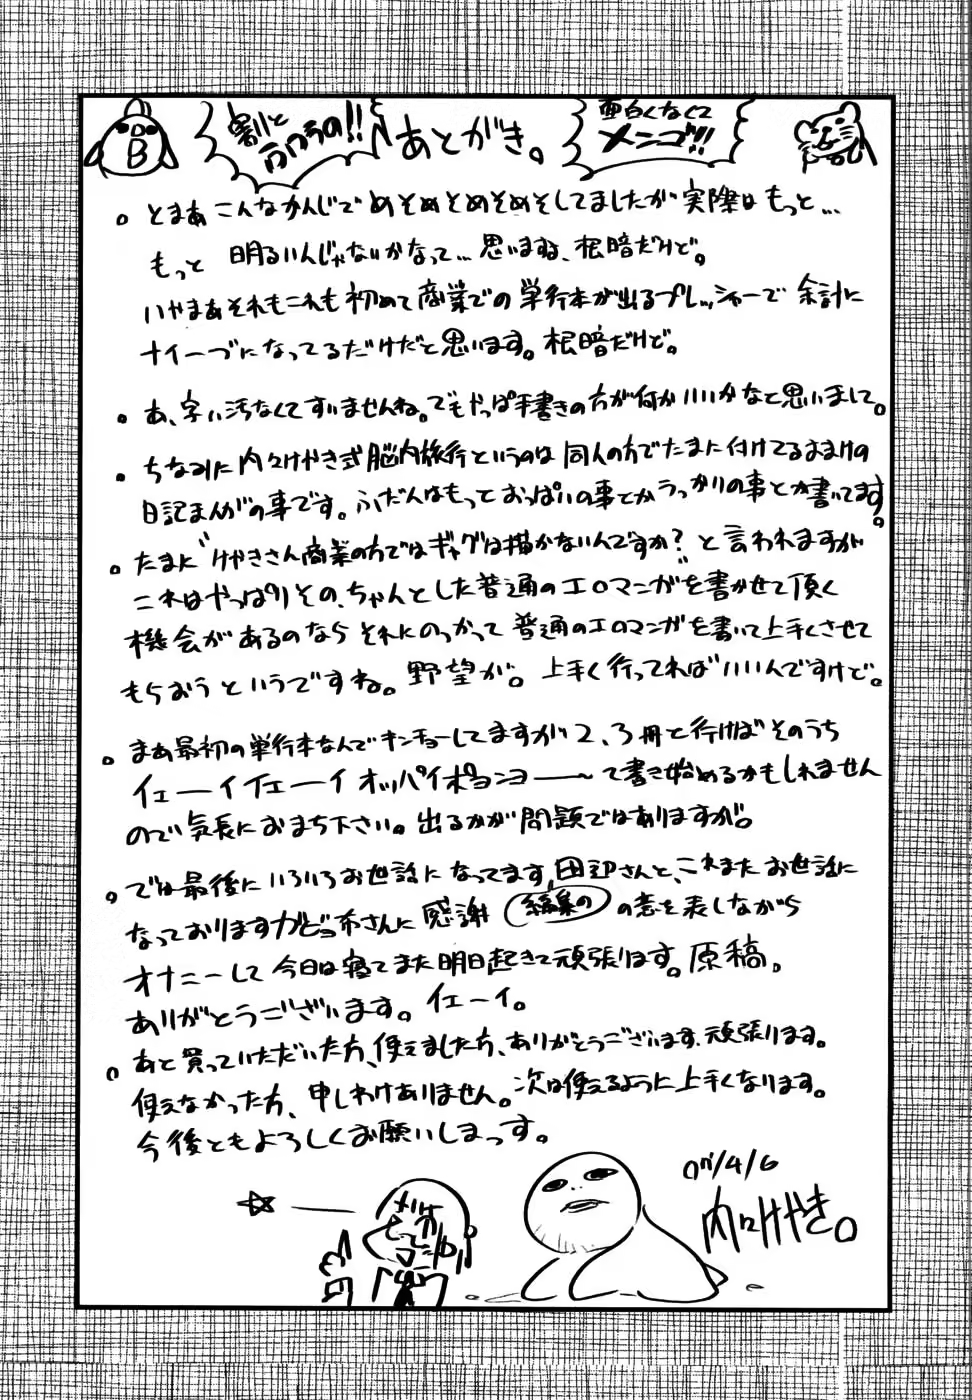 割と
ふつうの!!
あとがき。
面白くなくて
メンゴ!!!
DD
B
。とまあ こんなかんじで めそめそとめそめそしてましたが 実際は もっと…
もっと 明るいんじゃないかなって… 思いますね、根暗だけど。
いやまあそれもこれも 初めて商業での 単行本が出るプレッシャーで 余計に
ナイーブになってるだけだと思います。根暗だけど。
。あ、字い汚なくてすいませんね。でもやっぱ手書きの方が何かいいかなと思いまして。
。ちなみに 内々けやき式 脳内旅行というのは 同人の方でたまに付けてるおまけの
日記まんがの事です。ふだんはもっと おっぱいの事とかうっかりの事とか書いてます。
。たまに〝けやきさん商業の方ではギャグは描かないんですか?〟と 言われますが
これはやっぱりその、ちゃんとした普通のエロマンガを書かせて頂く
機会があるのなら それにのっかって 普通のエロマンガを書いて上手くさせて
もらおうというですね。野望が。上手く行ってればいいんですけど。
。まあ最初の単行本なんでキンチョーしてますが 2、3冊と行けば そのうち
イェーイイェーイ オッパイポヨンヨー〜て書き始めるかもしれません
ので 気長におまち下さい。出るかが問題ではありますが。
。では最後に いろいろお世話になってます 田辺さんと、これまた お世話に
なっております かどつ布さんに 感謝 編集の の意を表しながら
オナニーして 今日は寝て また明日起きて頑張ります。原稿。
ありがとうございます。 イェーイ。
。あと買っていただいた方、使えました方、ありがとうございます、頑張ります。
使えなかった方、申しわけありません。次は使えるように上手くなります。
今後ともよろしくお願いしまっす。
07/4/6
内々けやき。